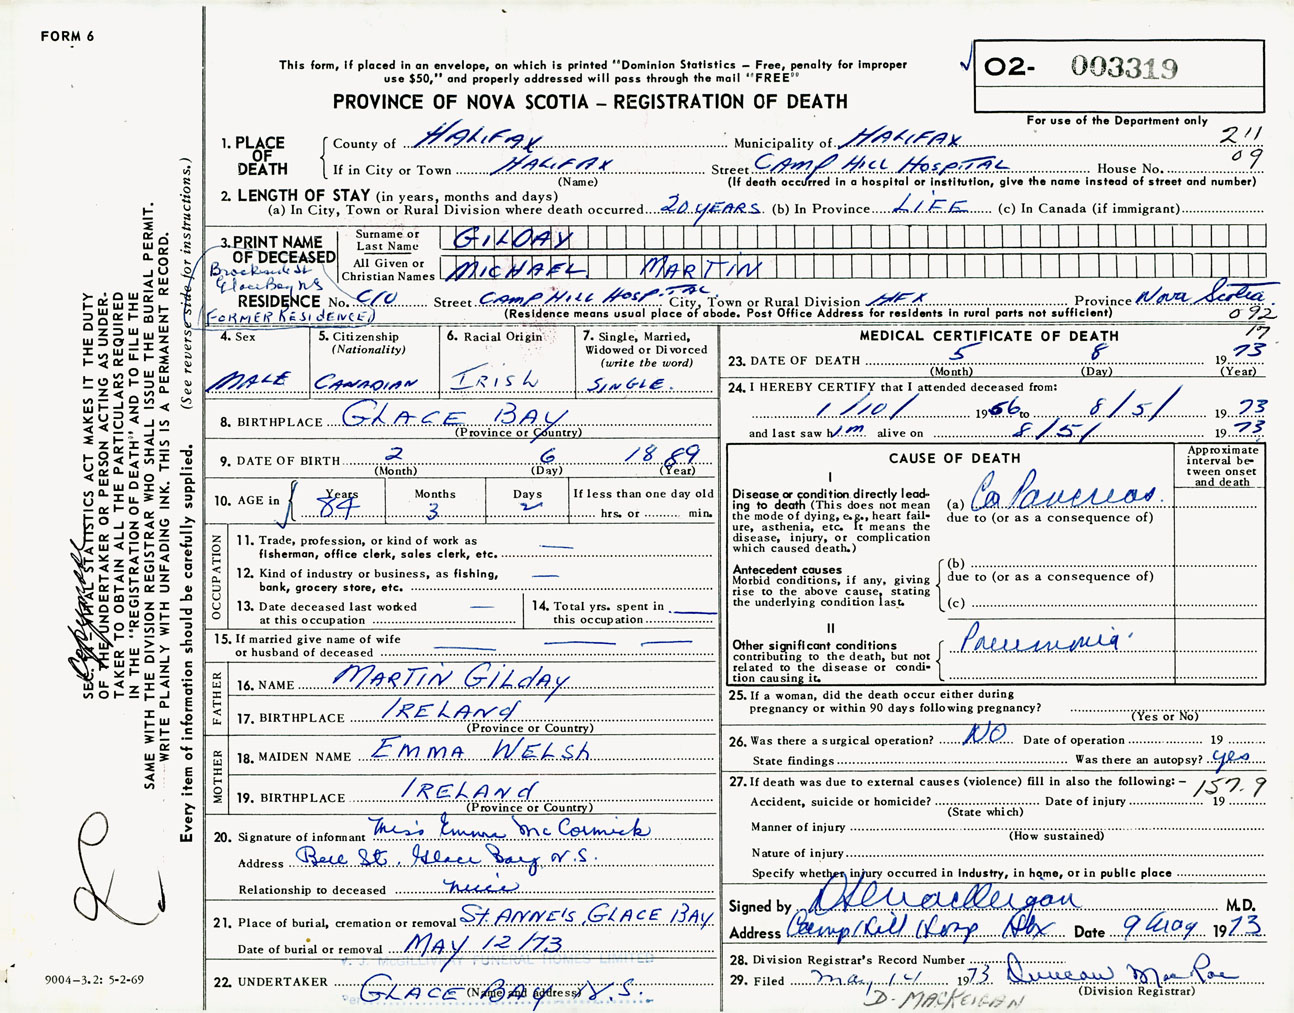 FORM 6
This form, if placed in an envelope, on which is printed "Dominion Statistics – Free, penalty for improper
use $50," and properly addressed will pass through the mail "FREE"
PROVINCE OF NOVA SCOTIA – REGISTRATION OF DEATH
O2- 003319
For use of the Department only
211
09
1. PLACE OF DEATH
County of HALIFAX Municipality of HALIFAX
If in City or Town HALIFAX Street CAMP HILL HOSPITAL House No.
(Name) (If death occurred in a hospital or institution, give the name instead of street and number)
2. LENGTH OF STAY (in years, months and days)
(a) In City, Town or Rural Division where death occurred 20 YEARS (b) In Province LIFE (c) In Canada (if immigrant)
3. PRINT NAME OF DECEASED
Surname or Last Name GILDAY
All Given or Christian Names MICHAEL MARTIN
Brookside St
Glace Bay NS
(FORMER RESIDENCE)
RESIDENCE No. C/O Street CAMP HILL HOSPITAL City, Town or Rural Division HFX Province Nova Scotia
(Residence means usual place of abode. Post Office Address for residents in rural parts not sufficient)
092
17
4. Sex MALE
5. Citizenship (Nationality) CANADIAN
6. Racial Origin IRISH
7. Single, Married, Widowed or Divorced (write the word) SINGLE.
8. BIRTHPLACE GLACE BAY
(Province or Country)
9. DATE OF BIRTH 2 6 1889
(Month) (Day) (Year)
10. AGE in Years 84 Months 3 Days 2 If less than one day old
hrs. or min.
OCCUPATION
11. Trade, profession, or kind of work as fisherman, office clerk, sales clerk, etc. —
12. Kind of industry or business, as fishing, bank, grocery store, etc. —
13. Date deceased last worked at this occupation —
14. Total yrs. spent in this occupation —
15. If married give name of wife or husband of deceased — — —
FATHER
16. NAME MARTIN GILDAY
17. BIRTHPLACE IRELAND
(Province or Country)
MOTHER
18. MAIDEN NAME EMMA WELSH
19. BIRTHPLACE IRELAND
(Province or Country)
20. Signature of informant Miss Emma McCormick
Address Bell St. Glace Bay N.S.
Relationship to deceased niece
21. Place of burial, cremation or removal ST. ANNE'S, GLACE BAY
Date of burial or removal MAY 12/73
FUNERAL HOMES LIMITED
22. UNDERTAKER GLACE BAY N.S.
(Name and address)
MEDICAL CERTIFICATE OF DEATH
23. DATE OF DEATH 5 8 1973
(Month) (Day) (Year)
24. I HEREBY CERTIFY that I attended deceased from:
1/10/ 1966 to 8/5/ 1973
and last saw him alive on 8/5/ 1973
CAUSE OF DEATH
Approximate interval between onset and death
I
Disease or condition directly lead-
ing to death (This does not
mean the mode of dying, e.g., heart fail-
ure, asthenia, etc. It means the
disease, injury, or complication
which caused death.)
(a) Ca Pancreas.
due to (or as a consequence of)
Antecedent causes
Morbid conditions, if any, giving
rise to the above cause, stating
the underlying condition last.
(b)
due to (or as a consequence of)
(c)
II
Other significant conditions
contributing to the death, but not
related to the disease or condi-
tion causing it.
Pneumonia
25. If a woman, did the death occur either during
pregnancy or within 90 days following pregnancy?
(Yes or No)
26. Was there a surgical operation? NO Date of operation 19
State findings Was there an autopsy? yes
27. If death was due to external causes (violence) fill in also the following: –
157.9
Accident, suicide or homicide? Date of injury 19
(State which)
Manner of injury
(How sustained)
Nature of injury
Specify whether injury occurred in industry, in home, or in public place
Signed by M.D.
Address Camp Hill Hosp Hfx Date 9 May 1973
28. Division Registrar's Record Number
29. Filed May 14 1973 Duncan MacRae
(Division Registrar)
D. MACKEIGAN
SEC. VITAL STATISTICS ACT MAKES IT THE DUTY
OF THE UNDERTAKER OR PERSON ACTING AS UNDER-
TAKER TO OBTAIN ALL THE PARTICULARS REQUIRED
IN THE "REGISTRATION OF DEATH" AND TO FILE THE
SAME WITH THE DIVISION REGISTRAR WHO SHALL ISSUE THE BURIAL PERMIT.
WRITE PLAINLY WITH UNFADING INK. THIS IS A PERMANENT RECORD.
Every item of information should be carefully supplied. (See reverse side for instructions.)
9004–3.2: 5-2-69